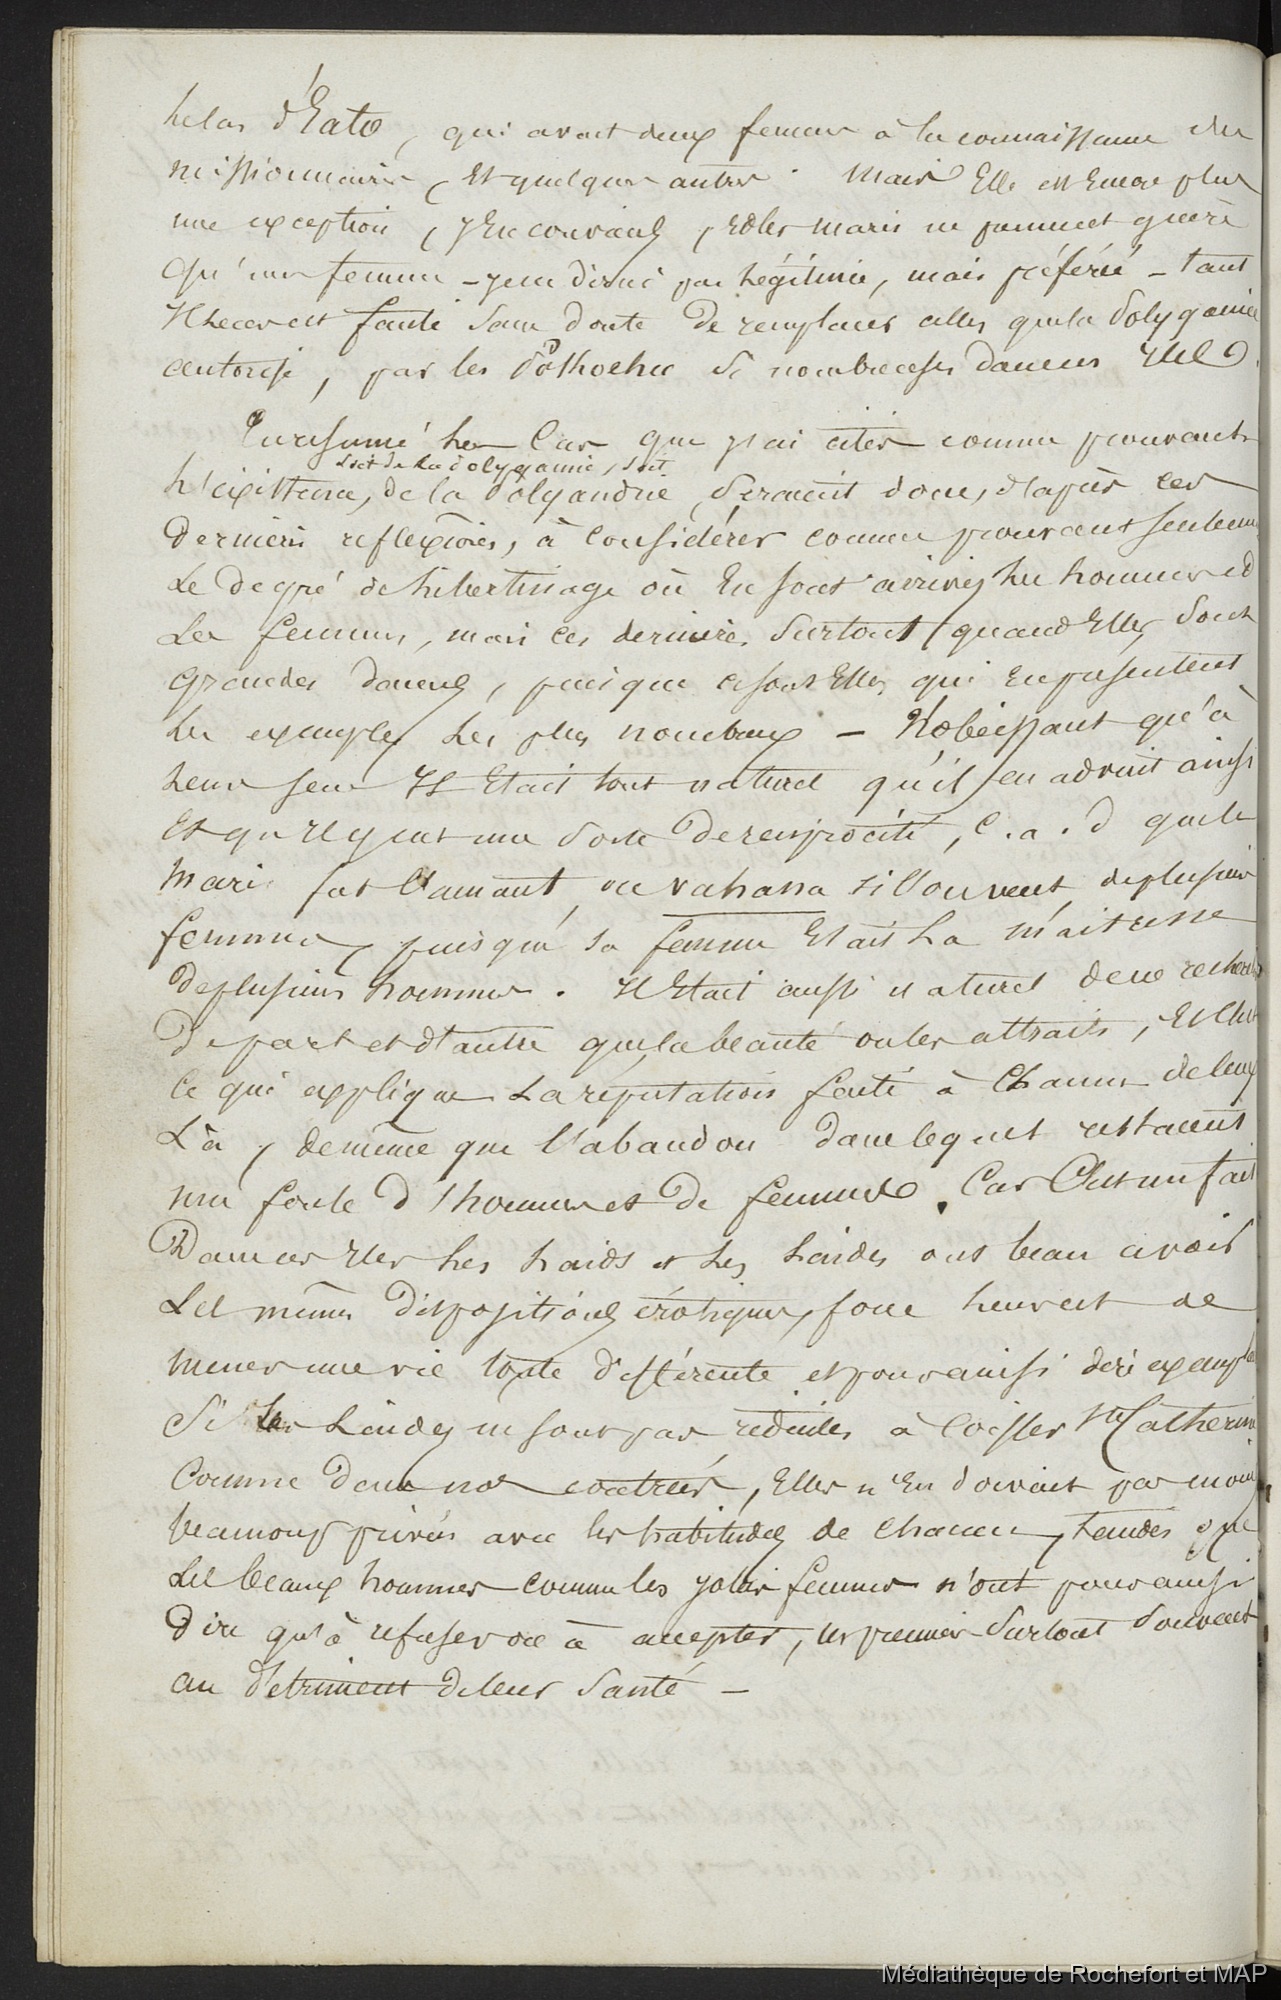 helas d'Eato, qui avait deux femmes à la connaissance des
missionnaires, Et quelques autres. Mais Elle est Encore plus
une exception, j'En conviens, Et les maris ne prennent guère
qu'une femme - je ne dirai pas légitime, mais préférée - tant
il leur est facile sans doute de remplacer celles que la Polygamie
autorise, par les Pokoehu si nombreuses dans ces Iles.
En resumé les Cas que j'ai cités comme prouvant
soit de la polygamie, soit
l'existence, de la Polyandrie, seraient donc, d'après ces
dernières reflexions, à considérer comme prouvant seulement
le degré de libertinage où En sont arrivés les hommes et
les femmes, mais ces dernières surtout quand Elles sont
grandes dames, puisque ce sont Elles qui En présentent
les exemples les plus nombreux - N'obéissant qu'à
leurs sens Il Etait tout naturel qu'il en advint ainsi
Et qu'il y eut une sorte de reciprocité, C. a. d que le
mari fut l'amant, ou vahana si l'on veut, de plusieurs
femmes, puisque sa femme Etait la maitresse
de plusieurs hommes. Il Etait aussi naturel de ne rechercher
de part et d'autre que la beauté ou les attraits, Et C'est
ce qui explique la réputation faite à Chacun de ceux
là, de même que l'abandon dans lequel restaient
une foule d'hommes et de femmes. Car C'est un fait
Dans ces Iles les laids et les laides ont beau avoir
les mêmes dispositions érotiques, force leur est de
mener une vie toute différente et pour ainsi dire exemplaire
Si les laides ne sont pas réduites à Coiffer Ste Catherine
Comme dans nos contrées, Elles n'En doivent pas moins
beaucoup privées avec les habitudes de chacun, tandis que
les beaux hommes comme les jolies femmes n'ont pour ainsi
dire qu'à refuser ou à accepter, les premiers surtout souvent
au détriment de leur Santé -
Médiathèque de Rochefort et MAP